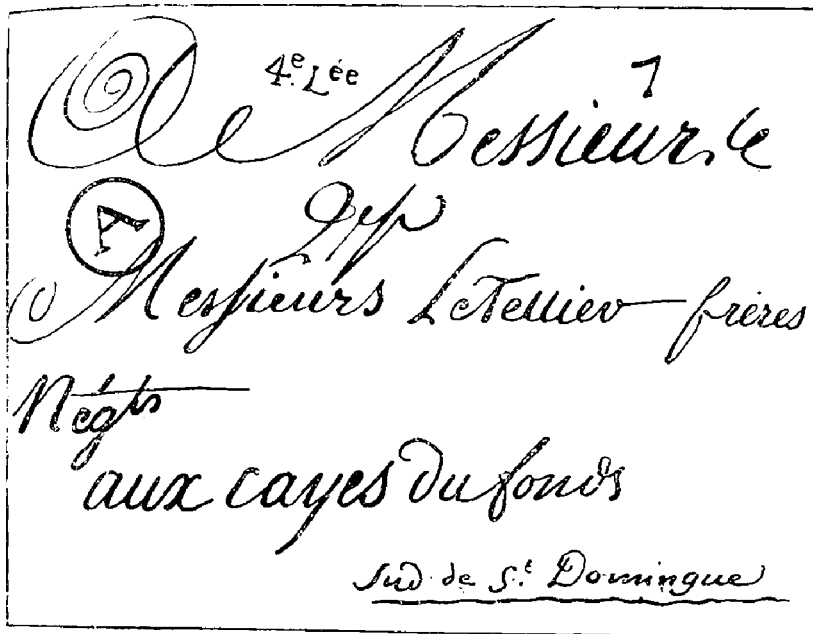 4e. Lée
A Messieurs
A
Messieurs LeTellier frères
Négts
aux cayes du fonds
Sud de St. Domingue